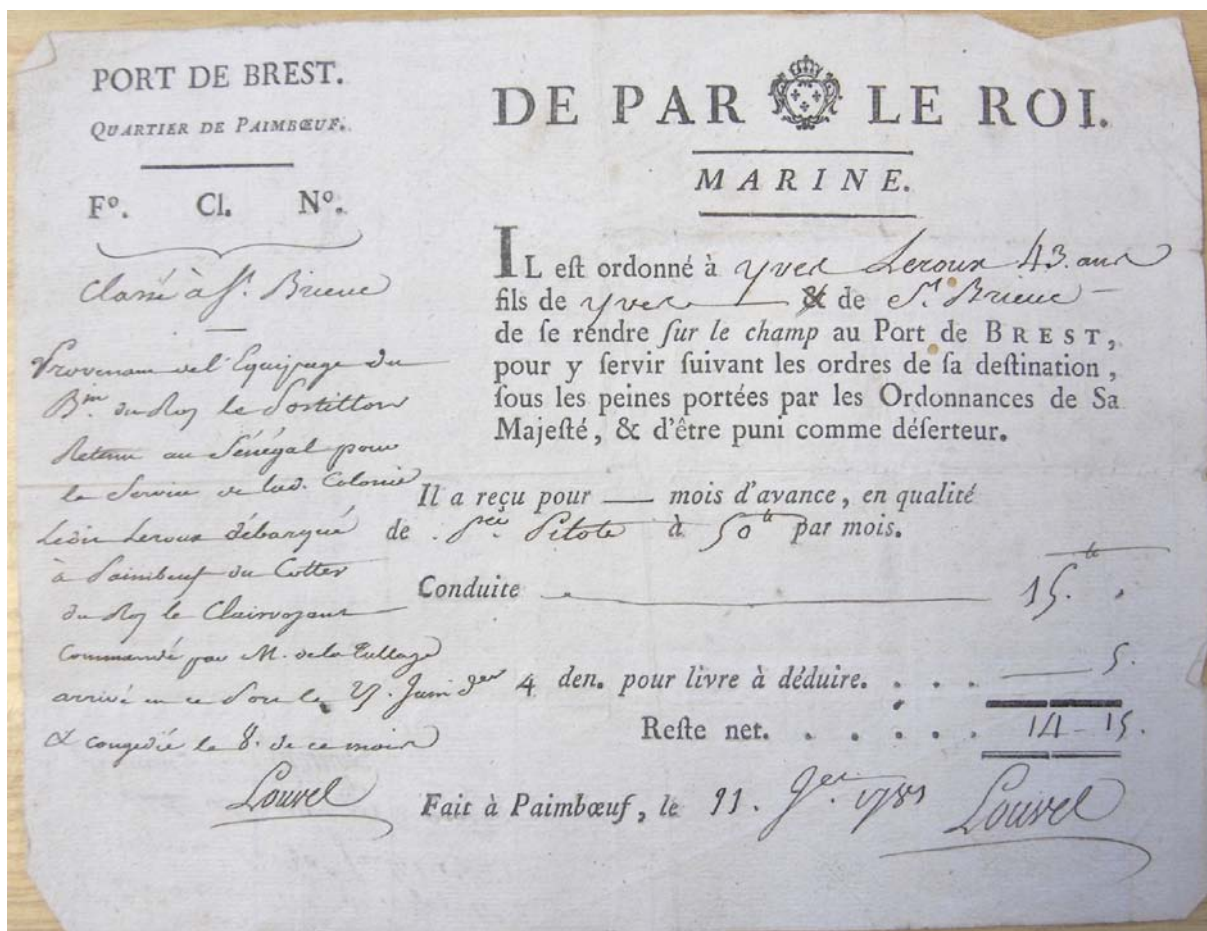 PORT DE BREST.
QUARTIER DE PAIMBŒUF.
Fº. Cl. Nº.
Classé à St. Brieuc
Provenant de l'Equipage du
Bm. du Roy le Postillon
Retenu au Sénégal pour
le Service de lad. Colonie
Leroux débarqué
à Paimbeuf du Cotter
du Roy le Clairvoyant
Commandé par M. de la
arrivé en ce Port le 27.
& congedié le 8. de ce mois
Louvel
DE PAR LE ROI.
MARINE.
IL eſt ordonné à Yves Leroux 43. ans
fils de Yves & de St. Brieuc
de ſe rendre ſur le champ au Port de BREST,
pour y ſervir ſuivant les ordres de ſa deſtination,
ſous les peines portées par les Ordonnances de Sa
Majeſté, & d'être puni comme déſerteur.
Il a reçu pour — mois d'avance, en qualité
de Pilote à 50 tt par mois.
Conduite 15. tt
4 den. pour livre à déduire. . . . 5.
Reſte net. . . . . . 14 - 15.
Fait à Paimbœuf, le 11.
Louvel